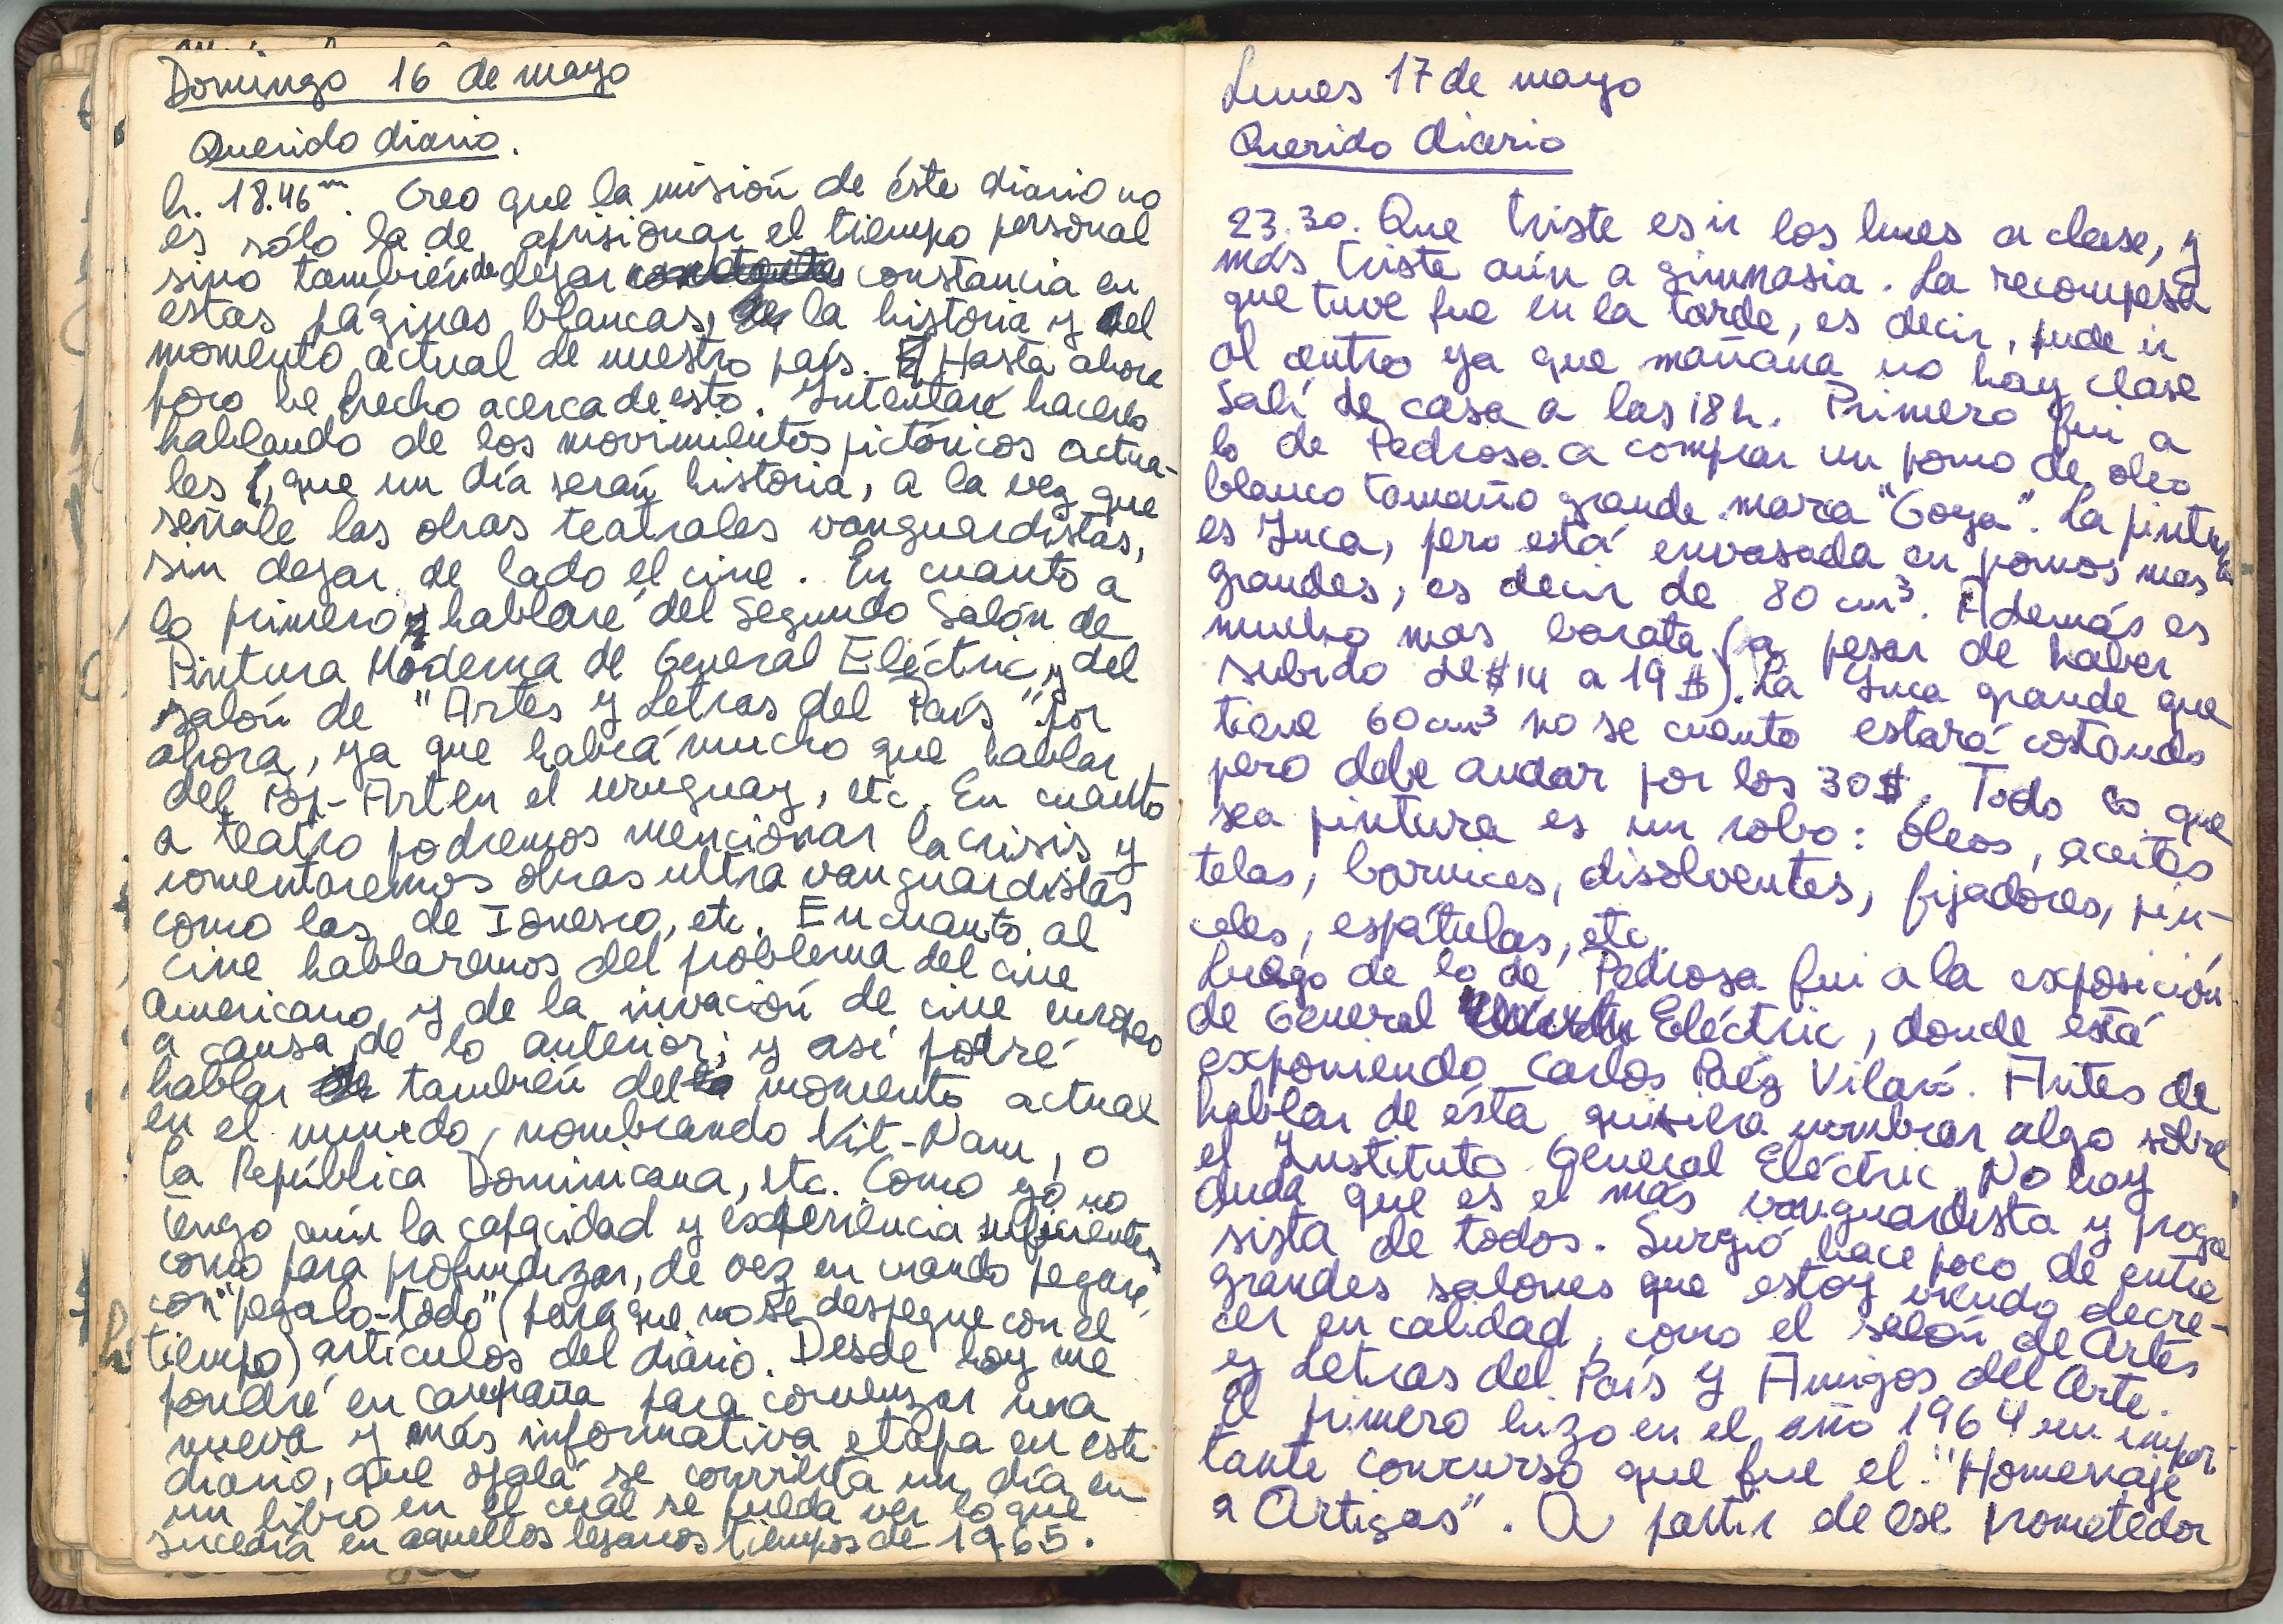 Domingo 16 de mayo
Querido diario.
h. 18.46 m. Creo que la misión de éste diario no
es sólo la de aprisionar el tiempo personal
sino también de dejar constancia en
estas páginas blancas, la historia y del
momento actual de nuestro país. Hasta ahora
poco he hecho acerca de esto. Intentaré hacerlo
hablando de los movimientos pictóricos actua-
les, que un día serán historia, a la vez que
señale las obras teatrales vanguardistas,
sin dejar de lado el cine. En cuanto a
lo primero hablaré del Segundo Salón de
Pintura Moderna de General Eléctric y del
salón de "Artes y Letras del País" por
ahora, ya que habrá mucho que hablar
del Pop-Art en el uruguay, etc. En cuanto
a teatro podremos mencionar la crisis y
comentaremos obras ultra vanguardistas
como las de Ionesco, etc. En cuanto al
cine hablaremos del problema del cine
Americano y de la invación de cine europeo
a causa de lo anterior; y así podré
hablar también del momento actual
en el mundo, nombrando Vit-Nam, o
la República Dominicana, etc. Como yo no
tengo aún la capacidad y experiencia suficientes
como para profundizar, de vez en cuando pegaré,
con "pegalo-todo" (para que no se despegue con el
tiempo) artículos del diario. Desde hoy me
pondré en campaña para comenzar una
nueva y más informativa etapa en este
diario, que ojalá se convierta un día en
un libro en el cual se pueda ver lo que
sucedía en aquellos lejanos tiempos de 1965.
Lunes 17 de mayo
Querido diario
23.30. Que triste es ir los lunes a clase, y
más triste aún a gimnasia. La recompesa
que tuve fue en la tarde, es decir, pude ir
al centro ya que mañana no hay clase
Salí de casa a las 18 h. Primero fui a
lo de Pedrosa a comprar un pomo de oleo
blanco tamaño grande marca "Goya". La pintura
es Inca, pero está envasada en pomos mas
grandes, es decir de 80 cm³. Además es
mucho mas barata (a pesar de haber
subido de $ 14 a 19 $). La Inca grande que
tiene 60 cm³ no se cuanto estará costando
pero debe andar por los 30 $. Todo lo que
sea pintura es un robo: óleos, aceites
telas, barnices, disolventes, fijadores, pin-
celes, espátulas, etc.
Luego de lo de Pedrosa fui a la exposición
de General Eléctric, donde está
exponiendo Carlos Paéz Vilaró. Antes de
hablar de ésta quisiera nombrar algo sobre
el Instituto General Eléctric. No hay
duda que es el más vanguardista y progre
sista de todos. Surgió hace poco de entre
grandes salones que estoy viendo decre-
cer en calidad, como el salón de Artes
y Letras del País y Amigos del Arte.
El primero hizo en el año 1964 un impor-
tante concurso que fue el "Homenaje
a Artigas". A partir de ese prometedor